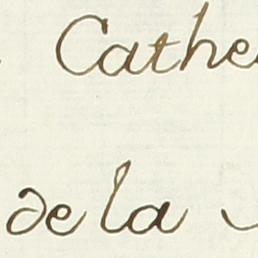 Cathe
de la